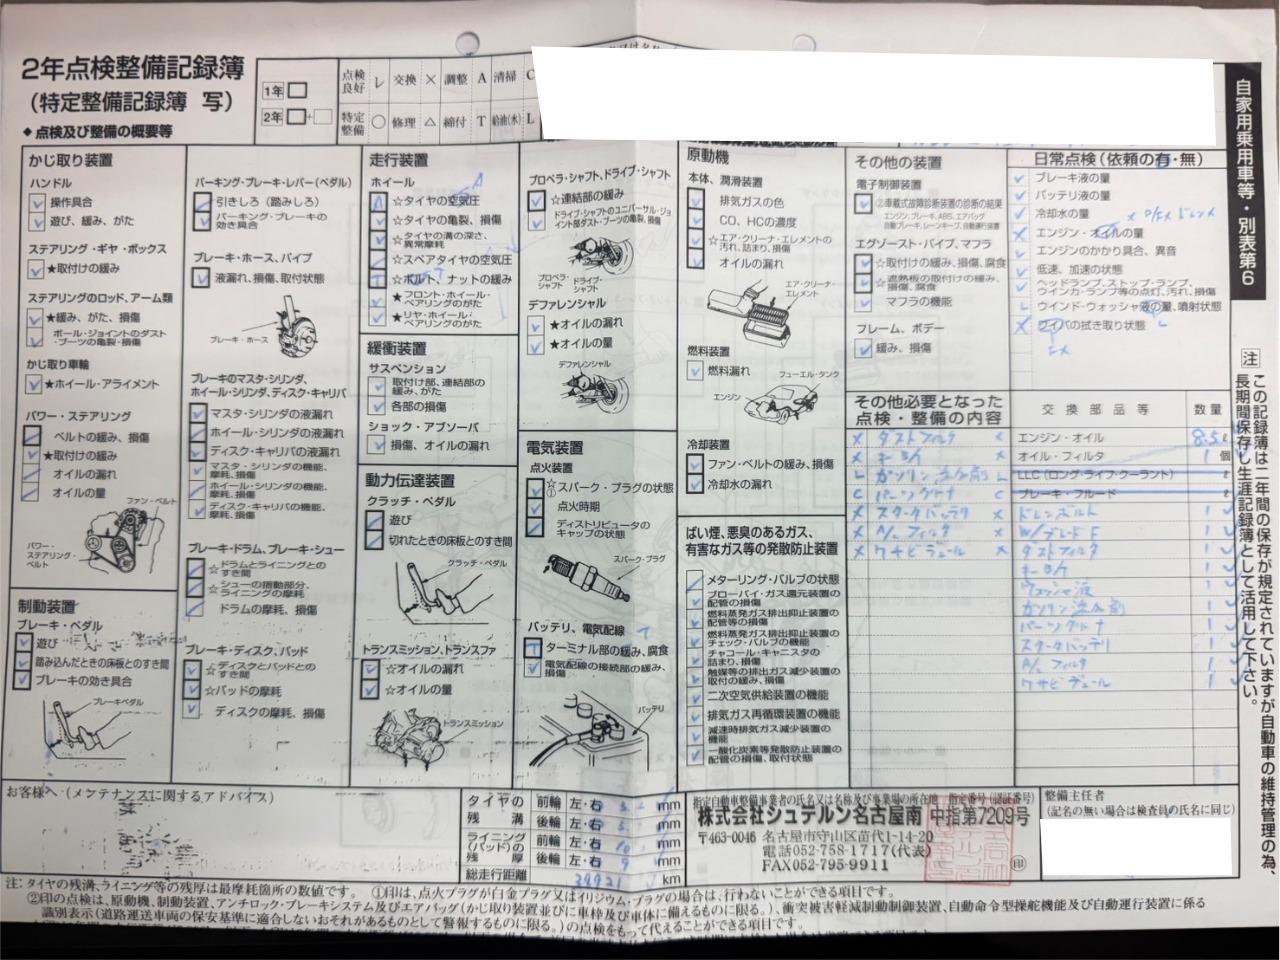 2年点検整備記録簿
(特定整備記録簿 写)
◆点検及び整備の概要等
1年
2年
点検良好 レ 交換 × 調整 A 清掃 C
特定整備 ○ 修理 △ 締付 T 給油(水) L
自家用乗用車等・別表第6
かじ取り装置
ハンドル
操作具合
遊び、緩み、がた
ステアリング・ギヤ・ボックス
★取付けの緩み
ステアリングのロッド、アーム類
★緩み、がた、損傷
ボール・ジョイントのダスト・ブーツの亀裂・損傷
かじ取り車輪
★ホイール・アライメント
パワー・ステアリング
ベルトの緩み、損傷
★取付けの緩み
オイルの漏れ
オイルの量
ファン・ベルト
パワー・ステアリング・ベルト
制動装置
ブレーキ・ペダル
遊び
踏み込んだときの床板とのすき間
ブレーキの効き具合
ブレーキペダル
パーキング・ブレーキ・レバー(ペダル)
引きしろ(踏みしろ)
パーキング・ブレーキの効き具合
ブレーキ・ホース、パイプ
液漏れ、損傷、取付状態
ブレーキ・ホース
ブレーキのマスタ・シリンダ、
ホイール・シリンダ、ディスク・キャリパ
マスタ・シリンダの液漏れ
ホイール・シリンダの液漏れ
ディスク・キャリパの液漏れ
マスタ・シリンダの機能、摩耗、損傷
ホイール・シリンダの機能、摩耗、損傷
ディスク・キャリパの機能、摩耗、損傷
ブレーキ・ドラム、ブレーキ・シュー
☆ドラムとライニングとのすき間
☆シューの摺動部分、ライニングの摩耗
ドラムの摩耗、損傷
ブレーキ・ディスク、パッド
☆ディスクとパッドとのすき間
☆パッドの摩耗
ディスクの摩耗、損傷
走行装置
ホイール
☆タイヤの空気圧
☆タイヤの亀裂、損傷
☆タイヤの溝の深さ、異常摩耗
☆スペアタイヤの空気圧
☆ボルト、ナットの緩み
★フロント・ホイール・ベアリングのがた
★リヤ・ホイール・ベアリングのがた
緩衝装置
サスペンション
取付け部、連結部の緩み、がた
各部の損傷
ショック・アブソーバ
損傷、オイルの漏れ
動力伝達装置
クラッチ・ペダル
遊び
切れたときの床板とのすき間
クラッチ・ペダル
トランスミッション、トランスファ
☆オイルの漏れ
☆オイルの量
トランスミッション
プロペラ・シャフト、ドライブ・シャフト
☆連結部の緩み
ドライブ・シャフトのユニバーサル・ジョイント部ダスト・ブーツの亀裂、損傷
プロペラ・シャフト
ドライブ・シャフト
デファレンシャル
★オイルの漏れ
★オイルの量
デファレンシャル
電気装置
点火装置
☆① スパーク・プラグの状態
点火時期
ディストリビュータのキャップの状態
スパーク・プラグ
バッテリ、電気配線
ターミナル部の緩み、腐食
電気配線の接続部の緩み、損傷
バッテリ
原動機
本体、潤滑装置
排気ガスの色
CO、HCの濃度
☆エア・クリーナ・エレメントの汚れ、詰まり、損傷
オイルの漏れ
エア・クリーナ・エレメント
燃料装置
燃料漏れ
フューエル・タンク
エンジン
冷却装置
ファン・ベルトの緩み、損傷
冷却水の漏れ
ばい煙、悪臭のあるガス、
有害なガス等の発散防止装置
メターリング・バルブの状態
ブローバイ・ガス還元装置の配管の損傷
燃料蒸発ガス排出抑止装置の配管等の損傷
燃料蒸発ガス排出抑止装置のチェック・バルブの機能
チャコール・キャニスタの詰まり、損傷
触媒等の排出ガス減少装置の取付の緩み、損傷
二次空気供給装置の機能
排気ガス再循環装置の機能
減速時排気ガス減少装置の機能
一酸化炭素等発散防止装置の配管の損傷、取付状態
その他の装置
電子制御装置
②車載式故障診断装置の診断の結果
エンジン、ブレーキ、ABS、エアバッグ
自動ブレーキ、レーンキープ、自動運行装置
エグゾースト・パイプ、マフラ
☆取付けの緩み、損傷、腐食
☆遮熱板の取付けの緩み、損傷、腐食
マフラの機能
フレーム、ボデー
緩み、損傷
日常点検(依頼の有・無)
ブレーキ液の量
バッテリ液の量
冷却水の量
エンジン・オイルの量
エンジンのかかり具合、異音
低速、加速の状態
ヘッドランプ、ストップ・ランプ、
ウインカ・ランプ等の点灯、汚れ、損傷
ウインド・ウォッシャ液の量、噴射状態
ワイパの拭き取り状態
その他必要となった
点検・整備の内容
× ダストフィルタ ×
× キー電池 ×
L ガソリン添加剤 L
C パーツクリーナ C
× スターターバッテリ ×
× A/C フィルタ ×
× ワサビデュール ×
交換部品等 数量
エンジン・オイル 8.5 ℓ
オイル・フィルタ 1 個
LLC(ロング・ライフ・クーラント) ℓ
ブレーキ・フルード ℓ
ドレンボルト 1
W/ブレード F 1
ダストフィルタ 1
キー電池 1
ウォッシャ液 1
ガソリン添加剤 1
パーツクリーナ 1
スターターバッテリ 1
A/C フィルタ 1
ワサビデュール 1
注 この記録簿は二年間の保存が規定されていますが自動車の維持管理の為、
長期間保存し生涯記録簿として活用して下さい。
お客様へ(メンテナンスに関するアドバイス)
タイヤの残溝 前輪 左・右 mm
後輪 左・右 mm
ライニング(パッド)の残厚 前輪 左・右 10 mm
後輪 左・右 9 mm
総走行距離 39921 km
指定自動車整備事業者の氏名又は名称及び事業場の所在地 指定番号(認証番号)
株式会社シュテルン名古屋南 中指第7209号
〒463-0046 名古屋市守山区苗代1-14-20
電話052-758-1717(代表)
FAX052-795-9911
印
整備主任者
(記名の無い場合は検査員の氏名に同じ)
注:タイヤの残溝、ライニング等の残厚は最摩耗箇所の数値です。 ①印は、点火プラグが白金プラグ又はイリジウム・プラグの場合は、行わないことができる項目です。
②印の点検は、原動機、制動装置、アンチロック・ブレーキシステム及びエアバッグ(かじ取り装置並びに車枠及び車体に備えるものに限る。)、衝突被害軽減制動制御装置、自動命令型操舵機能及び自動運行装置に係る
識別表示(道路運送車両の保安基準に適合しないおそれがあるものとして警報するものに限る。)の点検をもって代えることができる項目です。